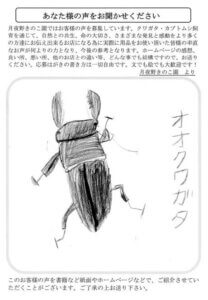 あなた様の声をお聞かせください
月夜野きのこ園では、お客様の声を募集しています。クワガタ・カブトムシ飼
育を通じて、自然との共生、命の大切さ、さまざまな発見と感動をより多く
の方達にお伝え出来るお店になる為に実際に用品をお使い頂いた皆様の率直
なお声が何よりの力となり、今後の参考となります。ホームページの感想、
良い所、悪い所、他のお店との違い等、どんな事でも結構ですので、お送り
ください。応募はがきの書き方は一切自由です。文でも絵でも大歓迎です！
月夜野きのこ園　より
オオクワガタ
このお客様の声を書籍など紙面やホームページなどで、ご紹介させてい
ただくことがございます。ご了承の上お送り下さい。